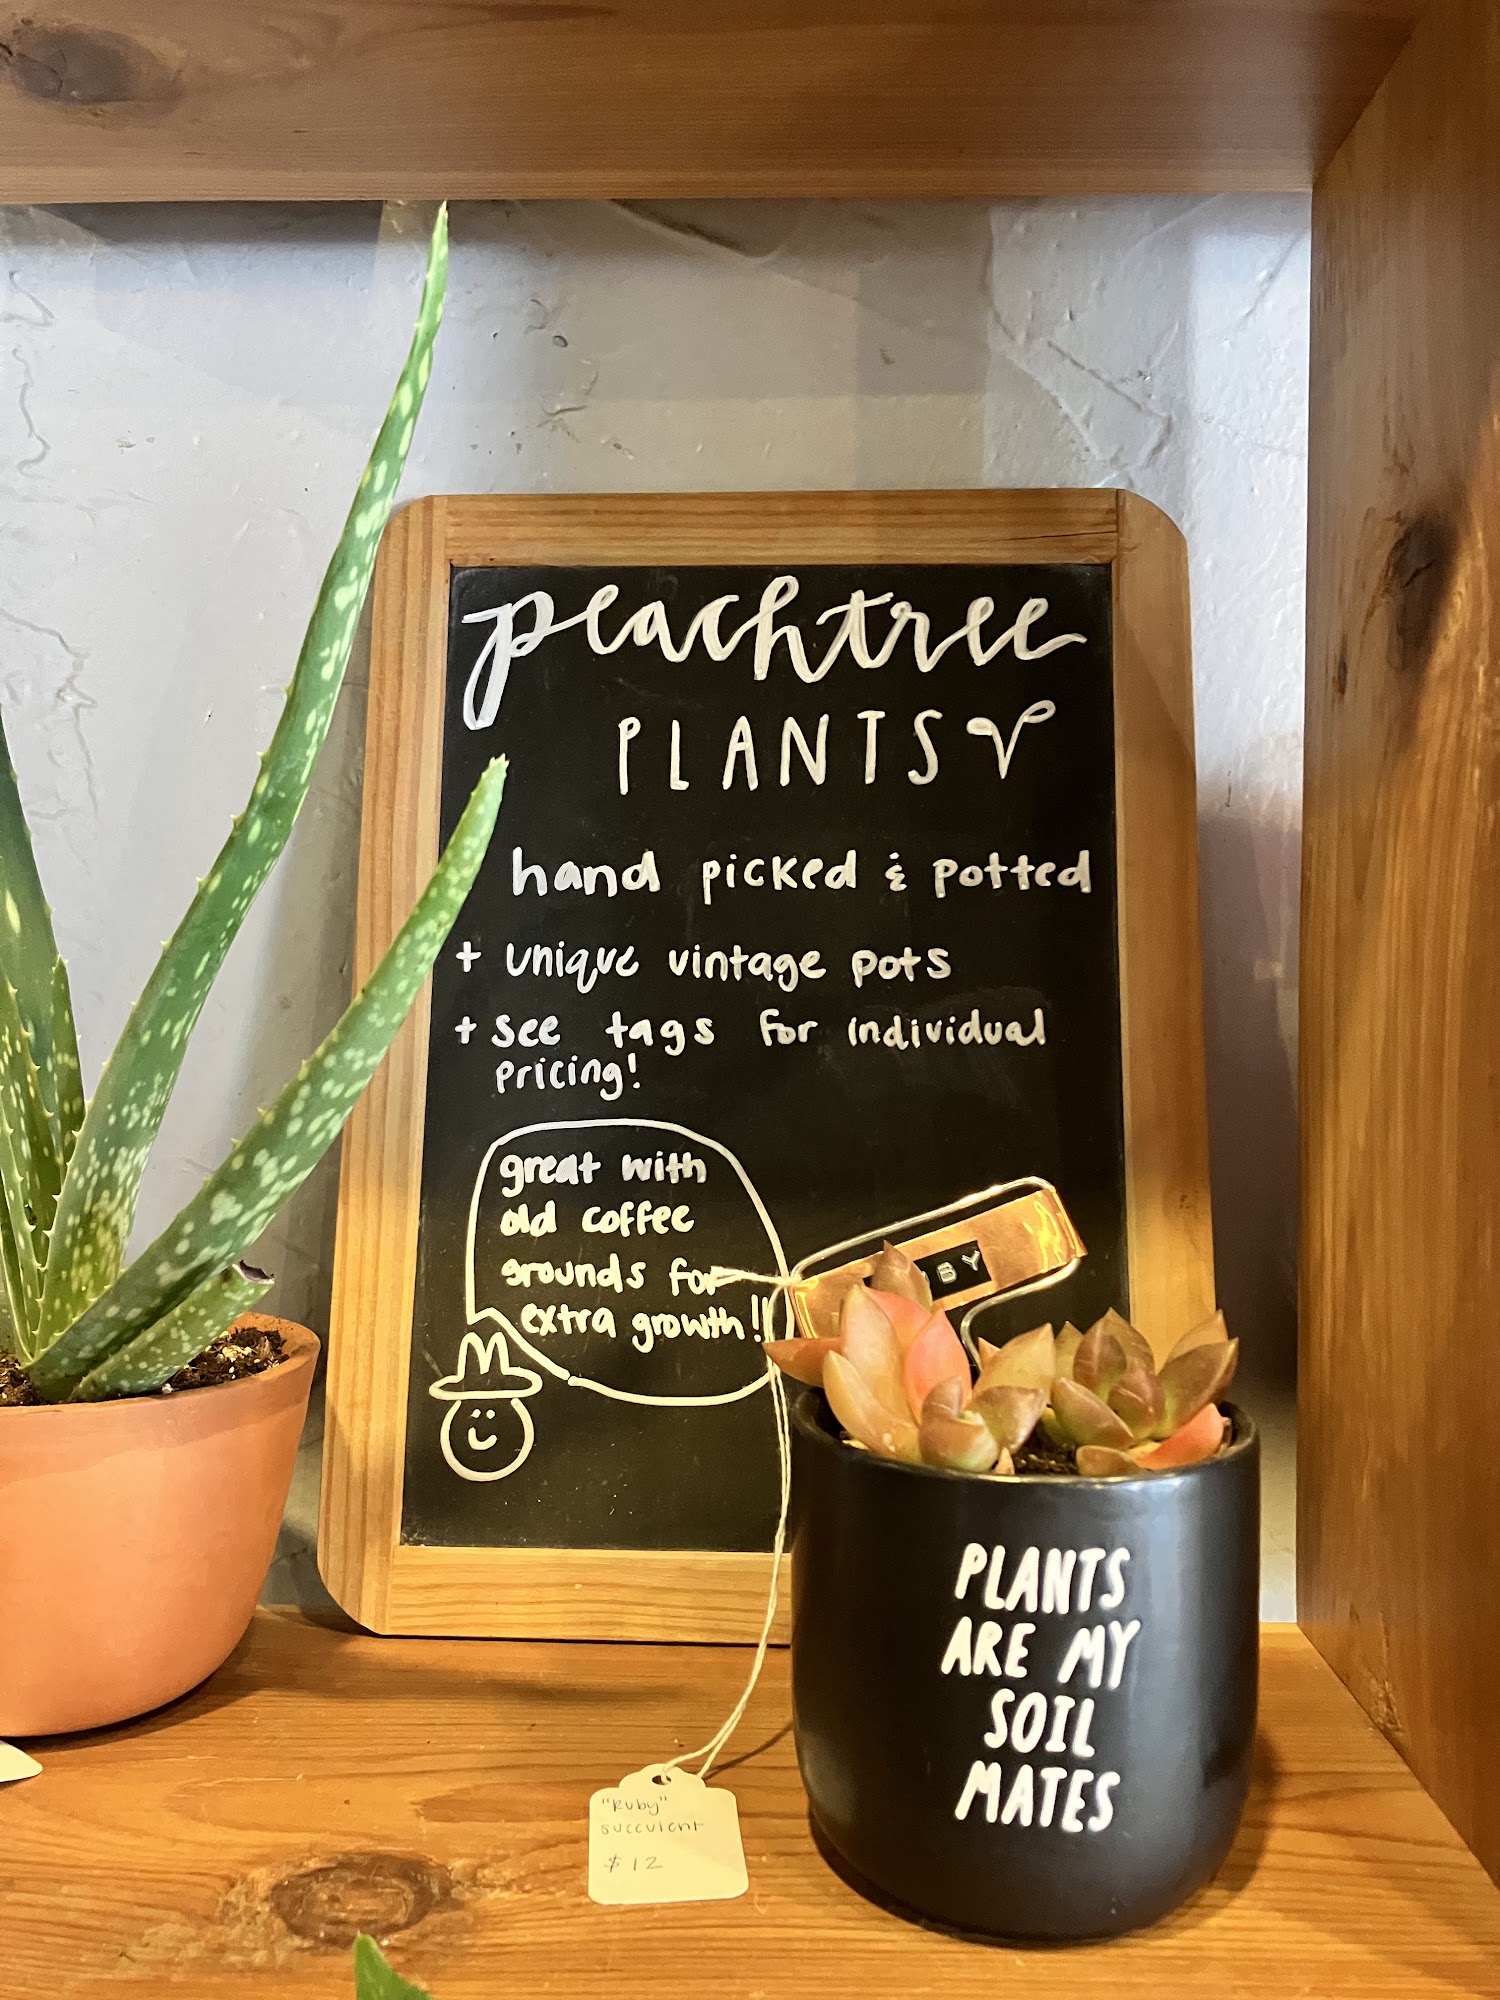 peachtree
PLANTS
hand picked & potted
+ unique vintage pots
+ see tags for individual
pricing!
great with
old coffee
grounds for
extra growth!!
BY
PLANTS
ARE MY
SOIL
MATES
"Ruby"
succulent
$12